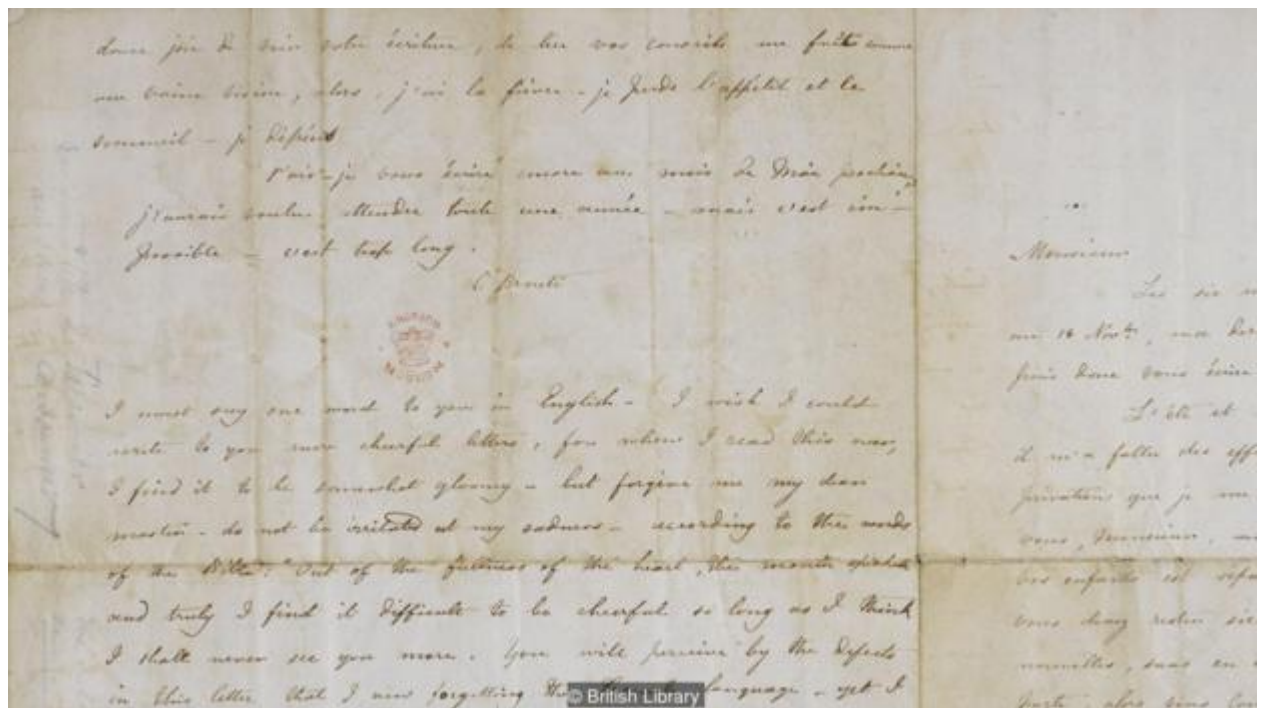 douce joie de voir votre écriture, de lire vos conseils me fuit comme
une vaine vision, alors, j'ai la fièvre - je perds l'appétit et le
sommeil - je dépéris
Puis-je vous écrire encore au mois de Mai prochain
j'aurais voulu attendre toute une année - mais c'est im-
possible - c'est trop long.
C Brontë
BRITISH MUSEUM
I must say one word to you in English - I wish I could
write to you more cheerful letters, for when I read this over,
I find it to be somewhat gloomy - but forgive me my dear
master - do not be irritated at my sadness - according to the words
of the Bible: "Out of the fullness of the heart, the mouth speaketh
and truly I find it difficult to be cheerful so long as I think
I shall never see you more. You will perceive by the defects
in this letter that I am forgetting the language - yet I
© British Library
Monsieur
Les six m
18 Novbre, ma der
puis donc vous écrire
L'été et
il m'a fallu des eff
privations que je me
vous, Monsieur,
vos enfants
vous devez rester
nouvelles, sans en